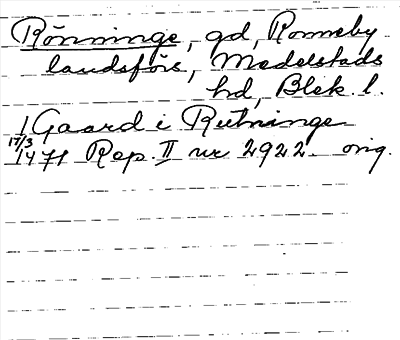 Rönninge, gd, Ronneby
landsförs, Medelstads
hd, Blek. l.
1 Gaard i Rutninge
17/3
1471 Rep. II nr 2922. orig.